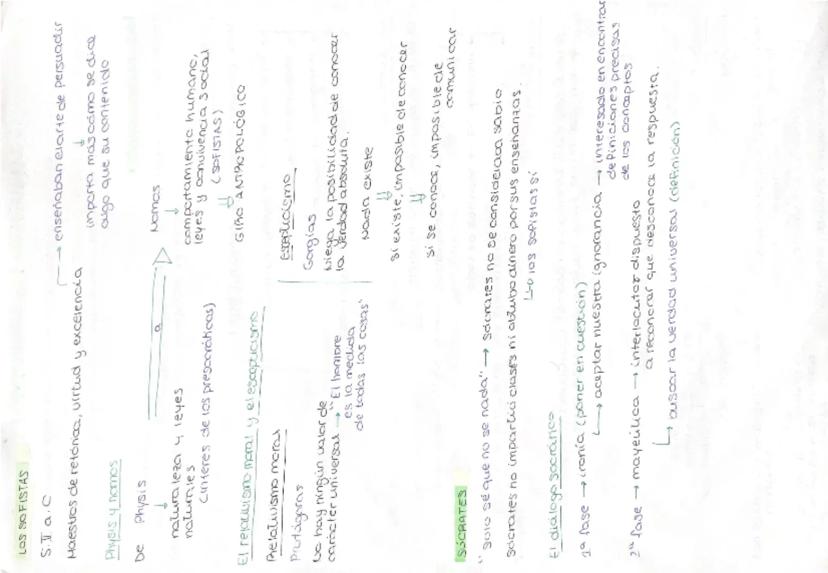 LOS SOFISTAS
S.V a.C
Maestros de retórica, virtud y excelencia → enseñaban el arte de persuadir
importa más cómo se dice
algo que su contenido
Physis y nomos
De Physis a Nomos
naturaleza y leyes
naturales
(interés de los presocráticos)
comportamiento humano,
leyes y convivencia social
(SOFISTAS)
GIRO ANTROPOLÓGICO
El relativismo moral y el escepticismo
Relativismo moral
Protágoras
No hay ningún valor de
carácter universal → "El hombre
es la medida
de todas las cosas"
escepticismo
Gorgias
Niega la posibilidad de conocer
la verdad absoluta.
Nada existe
si existe, imposible de conocer
si se conoce, imposible de
comunicar
SÓCRATES
"solo sé que no se nada" → Sócrates no se consideraba sabio
Sócrates no impartió clases ni obtubo dinero por sus enseñanzas.
↳ los sofistas sí
El diálogo socrático
1ª fase → ironía (poner en cuestión)
↳ aceptar nuestra ignorancia → interesado en encontrar
definiciones precisas
de los conceptos
2ª fase → mayeútica → interlocutor dispuesto
a reconocer que desconoce la respuesta.
↳ buscar la verdad universal (definición)